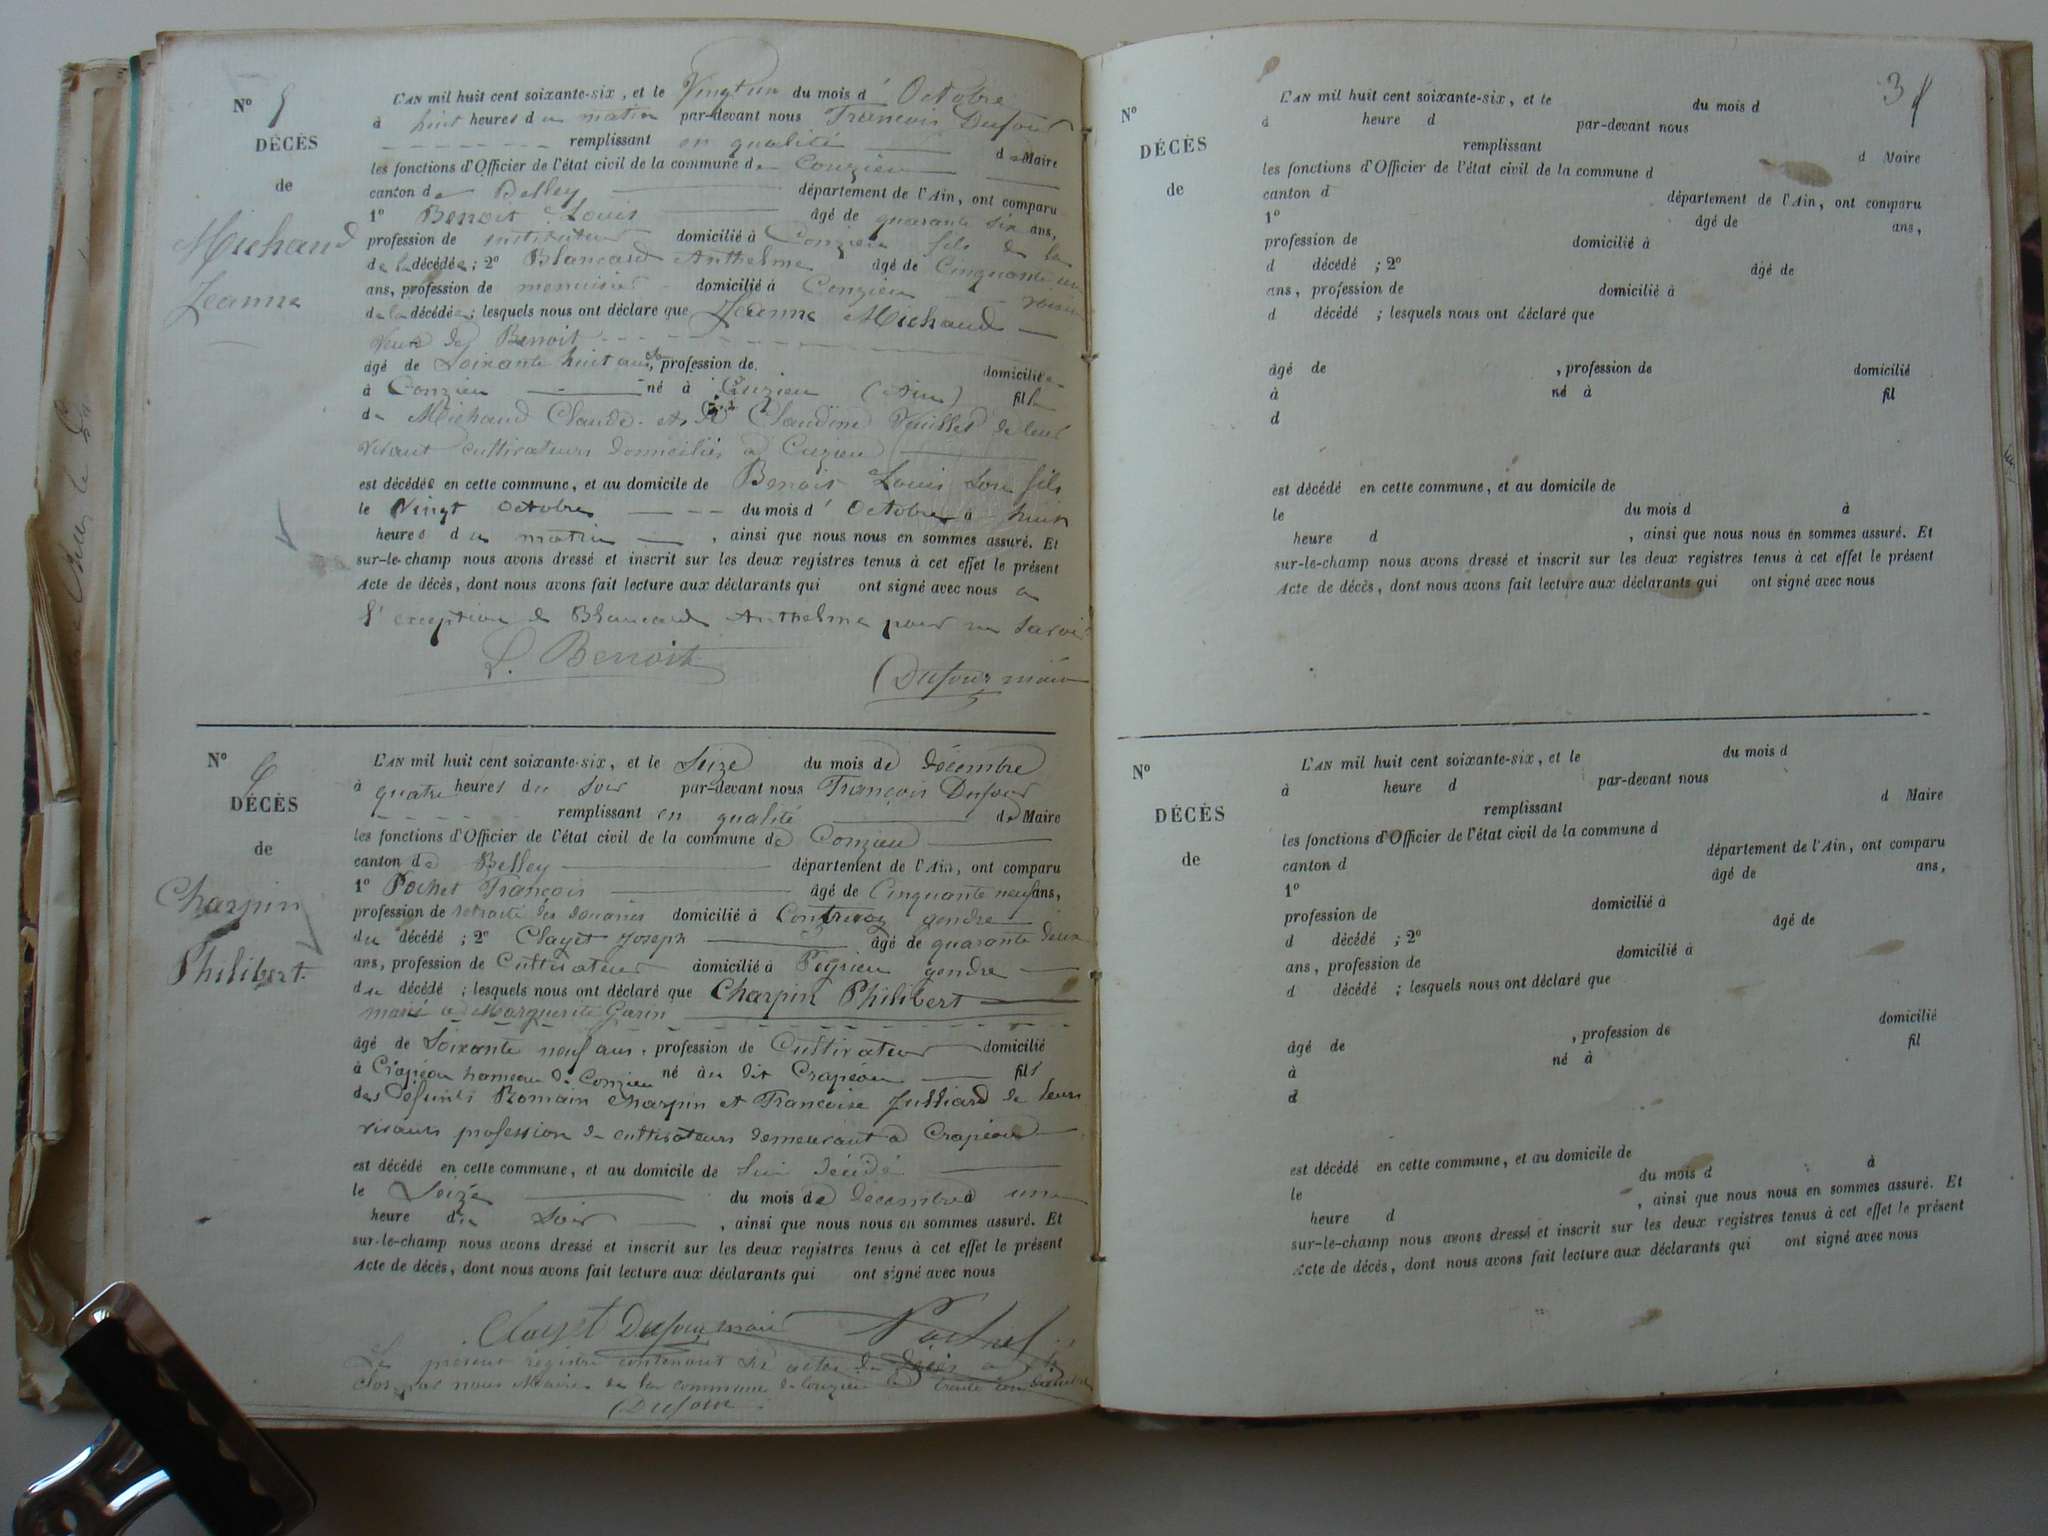 N° 5
DÉCÈS
de
Michaud
Jeanne
L'AN mil huit cent soixante-six, et le Vingt un du mois d' Octobre
à huit heures du matin par-devant nous François Dufour
remplissant en qualité de Maire
les fonctions d'Officier de l'état civil de la commune de Conzieu
canton de Belley département de l'Ain, ont comparu
1° Benoit Louis âgé de quarante six ans,
profession de instituteur domicilié à Conzieu fils de la
de la décédée ; 2° Blancard Anthelme âgé de Cinquante un
ans, profession de menuisier domicilié à Conzieu voisin
de la décédée ; lesquels nous ont déclaré que Jeanne Michaud
veuve de Benoit
âgé de Soixante huit ans, profession de domiciliée
à Conzieu né à Cuzieu (Ain) fille
de Michaud Claude et de Claudine de leur
vivant cultivateurs domiciliés à Cuzieu
est décédée en cette commune, et au domicile de Benoit Louis son fils
le Vingt octobre du mois d' Octobre à huit
heures du matin , ainsi que nous nous en sommes assuré. Et
sur-le-champ nous avons dressé et inscrit sur les deux registres tenus à cet effet le présent
Acte de décès, dont nous avons fait lecture aux déclarants qui ont signé avec nous a
l'exception de Blancard Anthelme pour ne savoir
L. Benoit
Dufour maire
N° 6
DÉCÈS
de
Charpin
Philibert
L'AN mil huit cent soixante-six, et le Seize du mois de décembre
à quatre heures du soir par-devant nous François Dufour
remplissant en qualité de Maire
les fonctions d'Officier de l'état civil de la commune de Conzieu
canton de Belley département de l'Ain, ont comparu
1° Pochet François âgé de Cinquante neuf ans,
profession de retraité des douanes domicilié à Contrevoz gendre
du décédé ; 2° Clayet Joseph âgé de quarante deux
ans, profession de Cultivateur domicilié à Peyrieu gendre
du décédé ; lesquels nous ont déclaré que Charpin Philibert
marié à Marguerite Garin
âgé de Soixante neuf ans, profession de Cultivateur domicilié
à Crapéou hameau de Conzieu né au dit Crapéou fils
des défunts Romain Charpin et Françoise Julliard de leurs
vivants profession de cultivateurs demeurant à Crapéou
est décédé en cette commune, et au domicile de lui décédé
le Seize du mois de décembre à une
heure du soir , ainsi que nous nous en sommes assuré. Et
sur-le-champ nous avons dressé et inscrit sur les deux registres tenus à cet effet le présent
Acte de décès, dont nous avons fait lecture aux déclarants qui ont signé avec nous
Clayet Dufour maire Pochet
Le présent registre contenant six actes de décès a été
clos par nous Maire de la commune de Conzieu le trente un décembre
Dufour
3
N°
DÉCÈS
de
L'AN mil huit cent soixante-six, et le du mois d
à heure d par-devant nous
remplissant d Maire
les fonctions d'Officier de l'état civil de la commune d
canton d département de l'Ain, ont comparu
1° âgé de ans,
profession de domicilié à
d décédé ; 2° âgé de
ans, profession de domicilié à
d décédé ; lesquels nous ont déclaré que
âgé de , profession de domicilié
à né à fil
d
est décédé en cette commune, et au domicile de
le du mois d à
heure d , ainsi que nous nous en sommes assuré. Et
sur-le-champ nous avons dressé et inscrit sur les deux registres tenus à cet effet le présent
Acte de décès, dont nous avons fait lecture aux déclarants qui ont signé avec nous
N°
DÉCÈS
de
L'AN mil huit cent soixante-six, et le du mois d
à heure d par-devant nous
remplissant d Maire
les fonctions d'Officier de l'état civil de la commune d
canton d département de l'Ain, ont comparu
1° âgé de ans,
profession de domicilié à
d décédé ; 2° âgé de
ans, profession de domicilié à
d décédé ; lesquels nous ont déclaré que
âgé de , profession de domicilié
à né à fil
d
est décédé en cette commune, et au domicile de
le du mois d à
heure d , ainsi que nous nous en sommes assuré. Et
sur-le-champ nous avons dressé et inscrit sur les deux registres tenus à cet effet le présent
Acte de décès, dont nous avons fait lecture aux déclarants qui ont signé avec nous